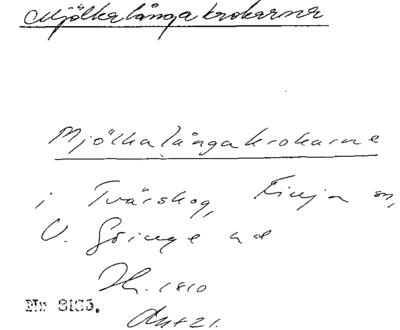 Mjölkalångakrokarne
Mjölkalångakrokarne
i Tvärskog, Finja sn,
V. Göinge hd
1810
Nr